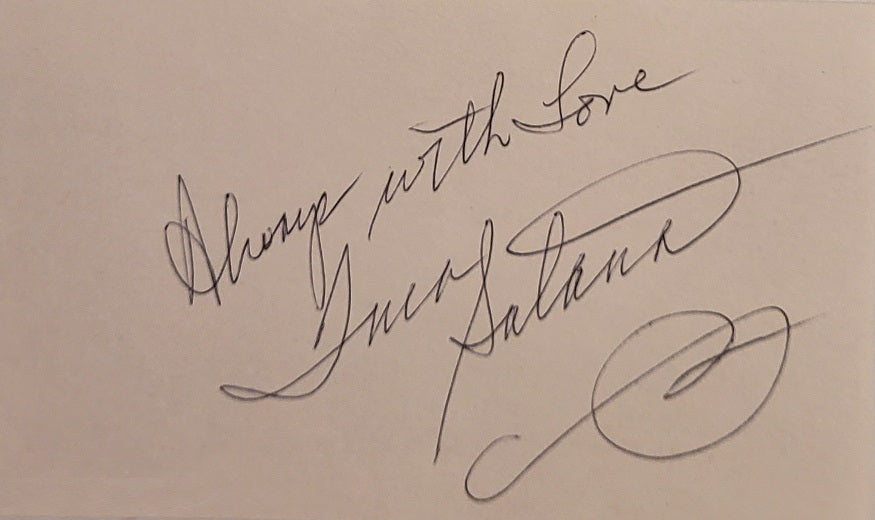 Always with Love
Tura Satana